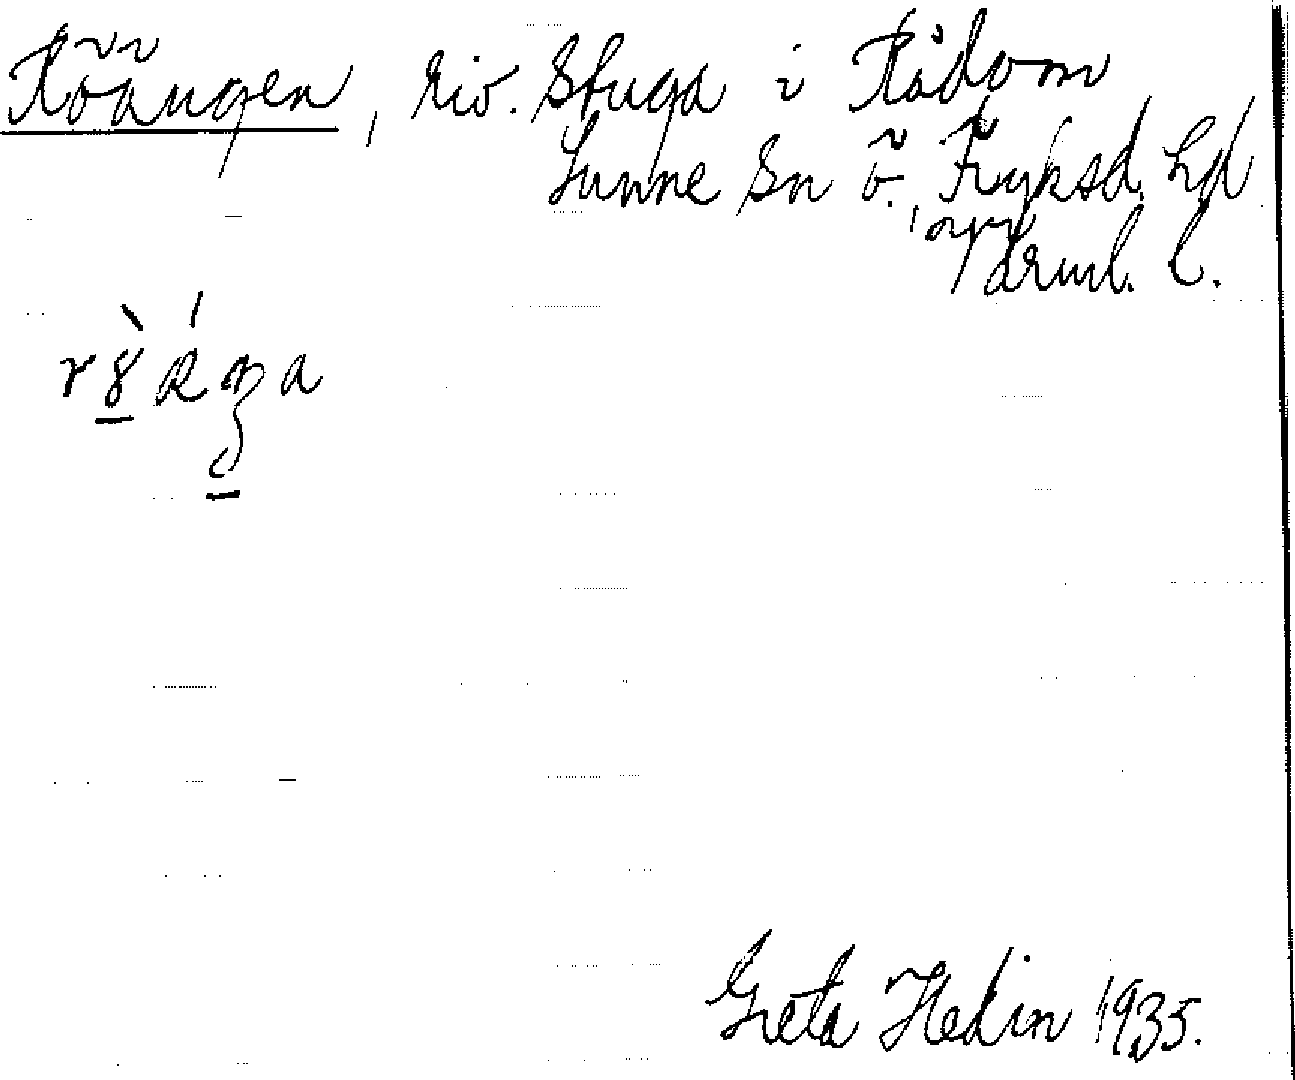 Röängen, riv. Stuga i Rådom
Sunne Sn Ö. Fryksd. hd
Värml. l.
Greta Hedin 1935.